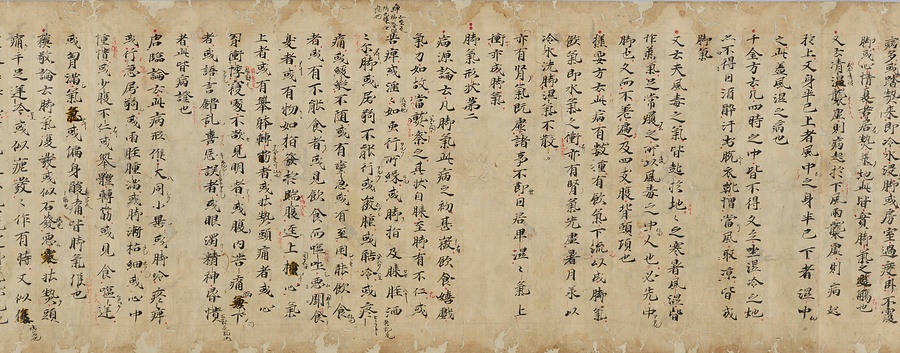 即冷水浸脚或房室過度再不覆
又云清濕襲虚則病起於下風雨襲虚則病起
於上又身半已上者風中之身半已下者濕中
之此並風濕之病也
千金方云凡四時之中皆不得久立坐濕冷之地
亦不得因酒醉汗出脱衣靴襪當風取凉皆成
脚氣
又云夫風毒之氣皆起於地々之寒暑風濕皆
作蒸氣足常履之所以風毒之中人也必先中
脚也久而不瘥遍及四支腹背頭項也
極要方云此病有數種有飲氣下流以成脚氣
飲氣即水氣之衝亦有腎氣先虚暑月承以
冷水洗脚濕氣不散
亦有腎氣既虚諸事不節因居卑濕々氣上
衝亦成脚氣
脚氣形狀第二
病源論云凡脚氣此病之初甚微飲食嬉戯
氣力如故當熟察之其狀自膝至脚有不仁或
若痺或淫々如虫行所縁或脚指及膝脛洒
々尒脚或屈弱不能行或微腫或酷冷或疼
痛或緩縱不随或有攣急或有至困能飲食
者或有不能食者或見飲食而嘔吐悪聞食
臭者或有物如指發於踹腸逕上衝心氣
上者或有舉體轉筋或壯熱頭痛者或心
胸衝悸寢處不欲見明者或腹内苦痛兼下
者或語言錯乱喜忘誤者或眼濁精神昏憒
者皆病證也
唐臨論云此病形候大同小異或脚冷疼痺
或行忽屈弱或兩脛腫満或脚漸枯細或心中
悸憒或少腹不仁或舉體轉筋或見食嘔逆
或胸満氣急或遍身酸痛皆脚氣候也
蘇敬論云脚氣復發或似石發悪寒壯熱頭
痛手足逆冷或似瘧發々作有時又似傷